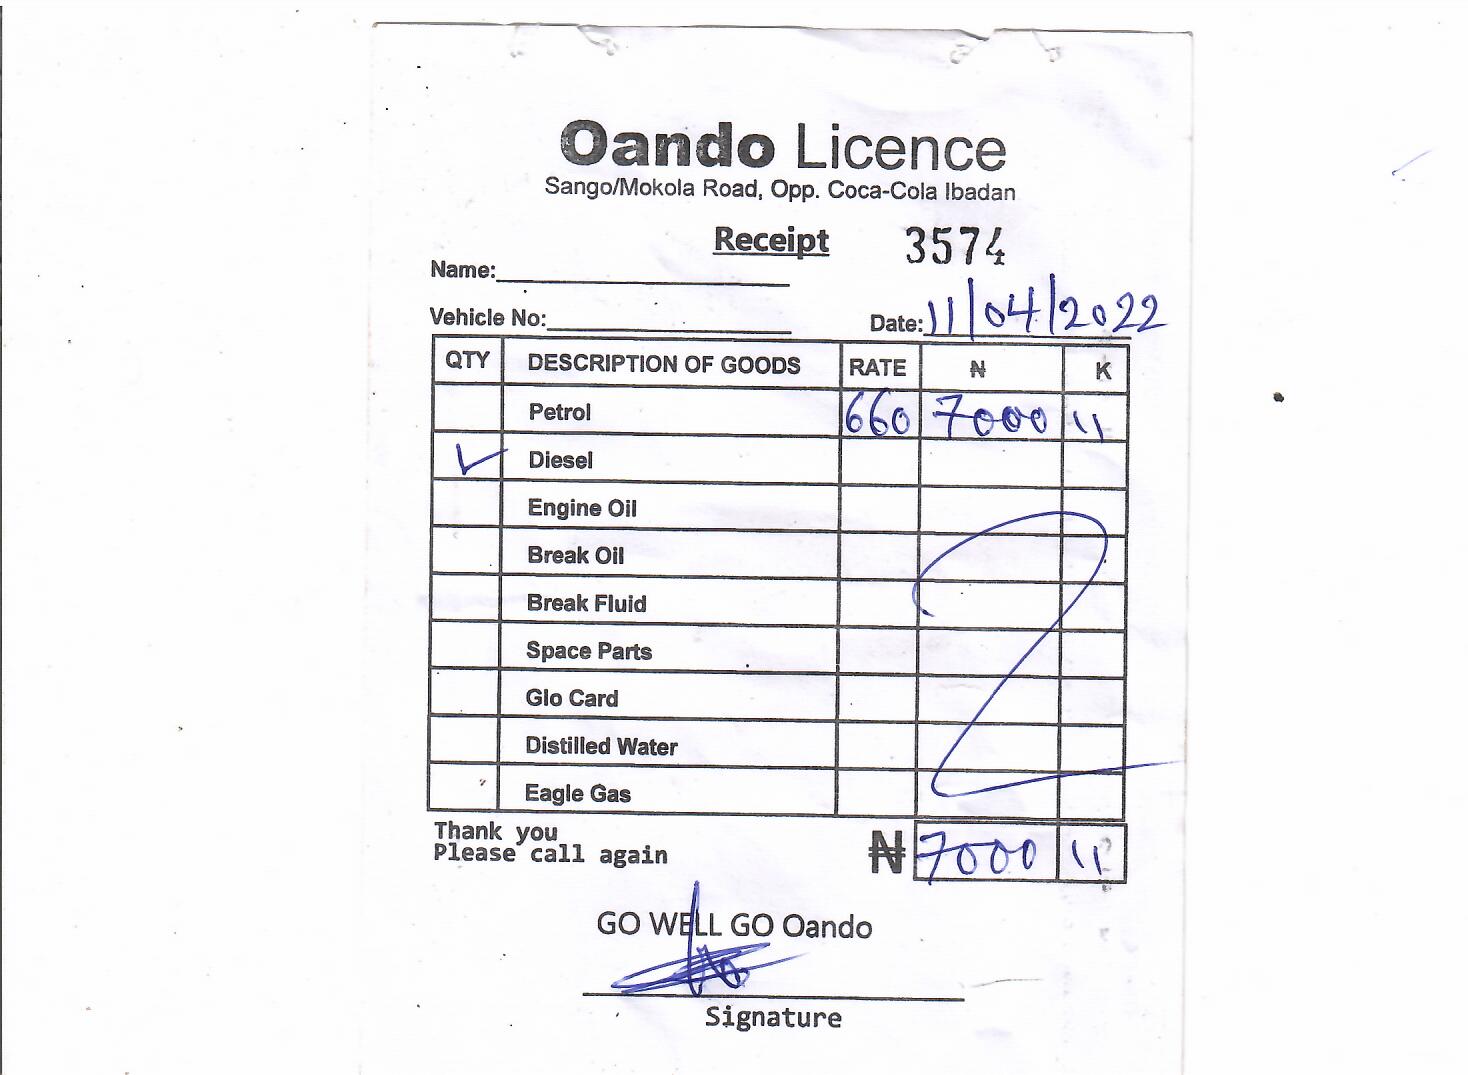 Oando Licence
Sango/Mokola Road, Opp. Coca-Cola Ibadan
Receipt 3574
Name:
Vehicle No: Date: 11/04/2022
QTY DESCRIPTION OF GOODS RATE ₦ K
Petrol 660 7000 11
✓ Diesel
Engine Oil
Break Oil
Break Fluid
Space Parts
Glo Card
Distilled Water
Eagle Gas
Thank you
Please call again ₦ 7000 11
GO WELL GO Oando
Signature